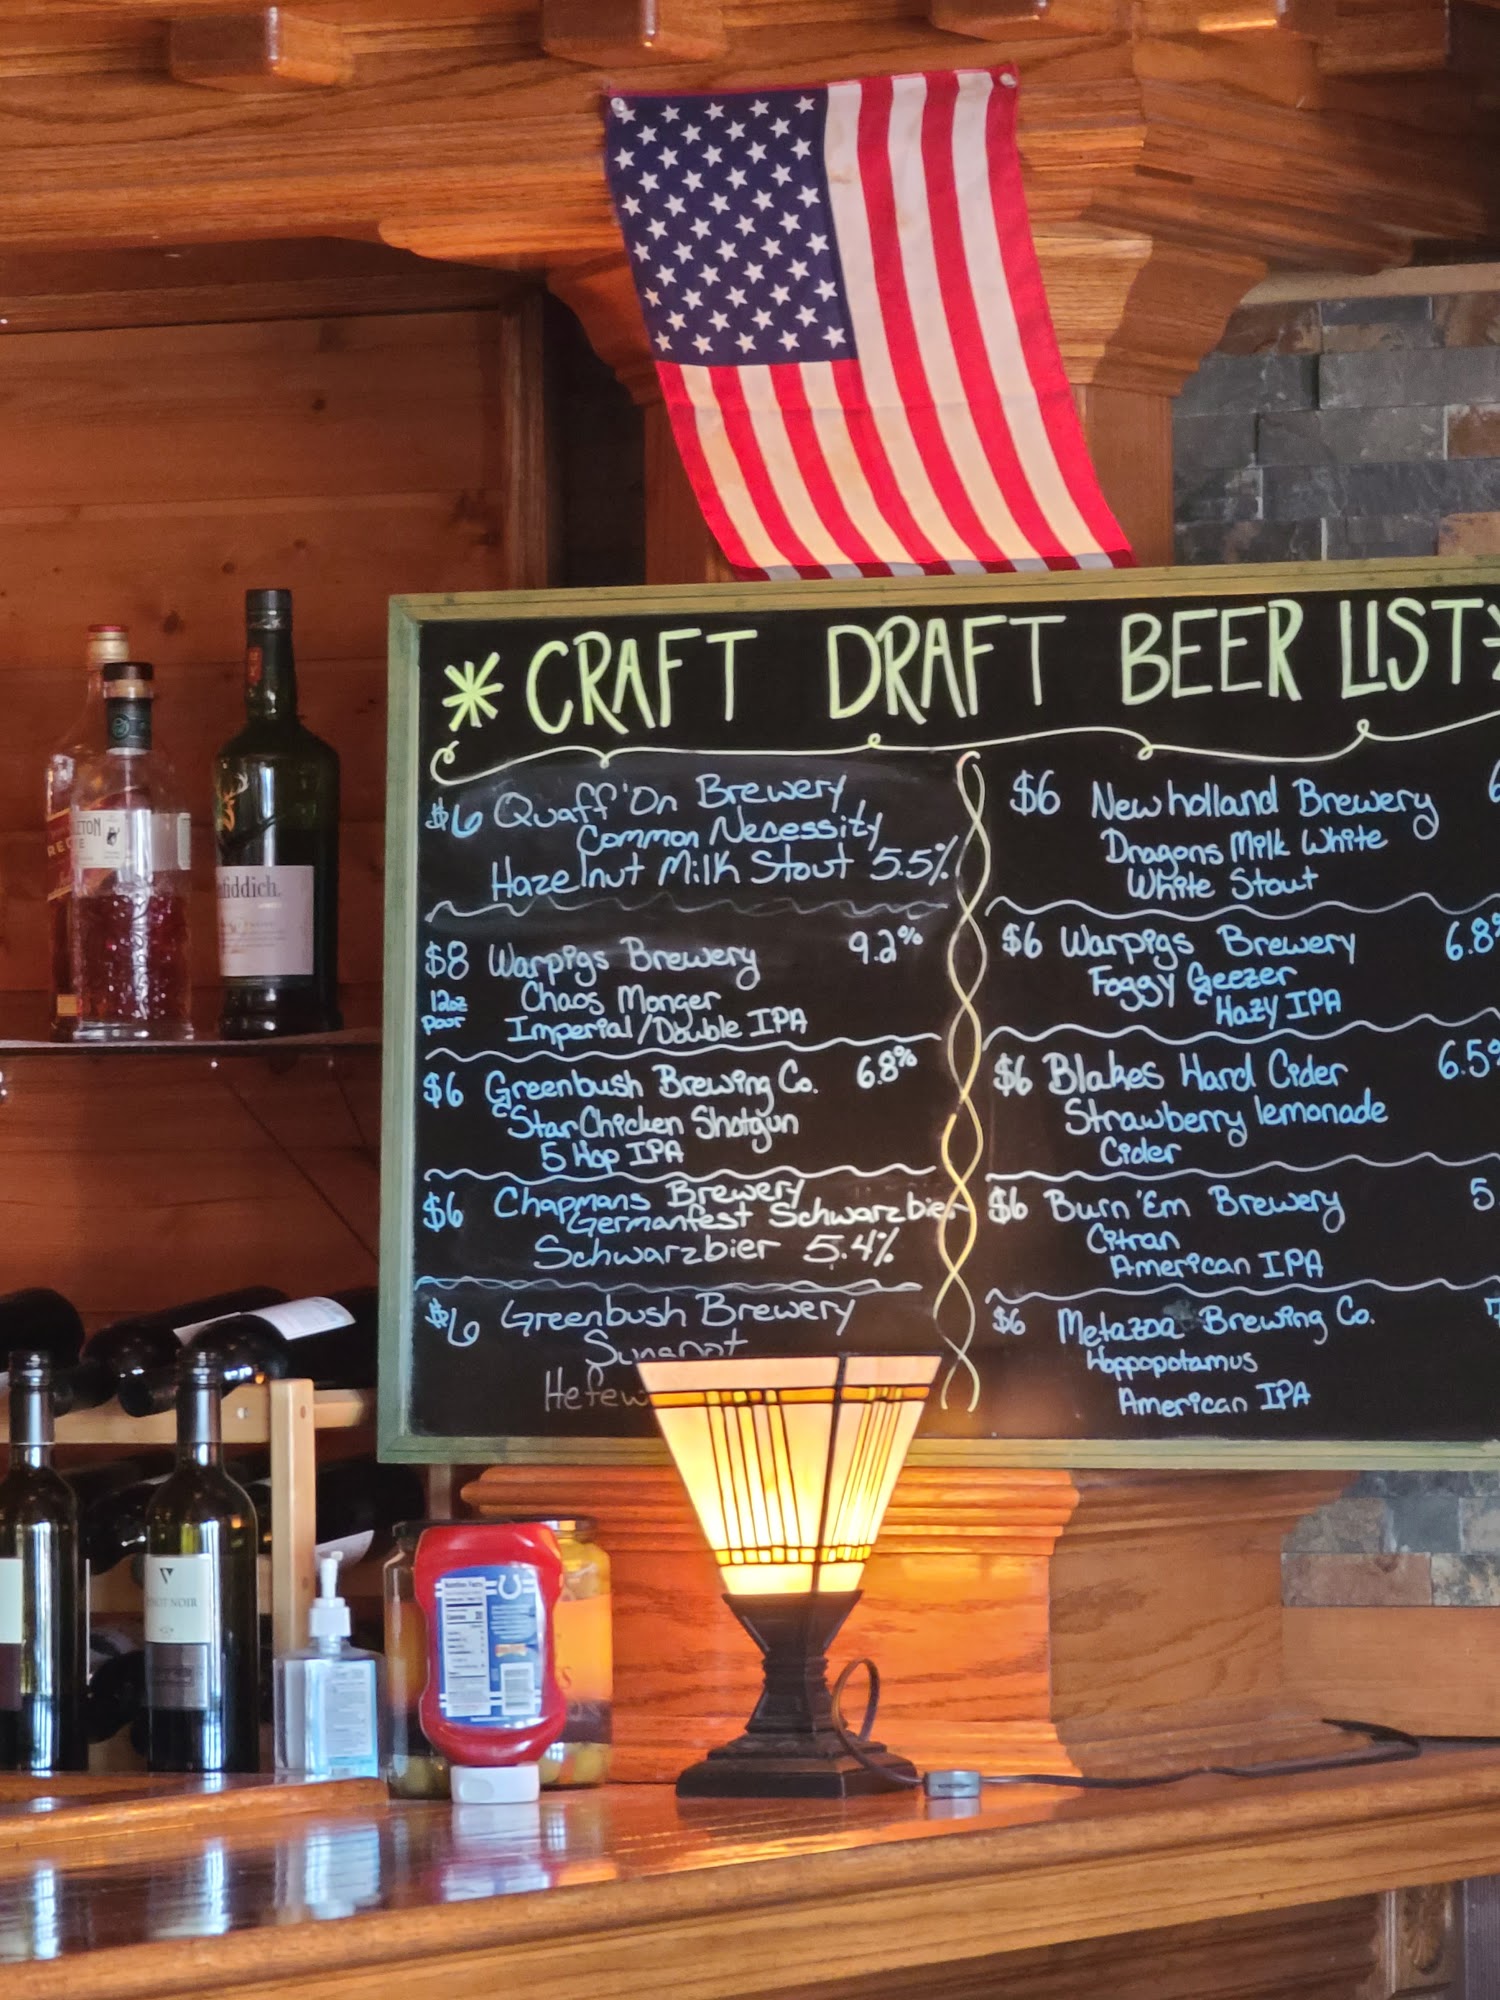 * CRAFT DRAFT BEER LIST
$6 Quaff'On Brewery
Common Necessity
Hazelnut Milk Stout 5.5%
$8 Warpigs Brewery 9.2%
12oz Pour
Chaos Monger
Imperial/Double IPA
$6 Greenbush Brewing Co. 6.8%
Star Chicken Shotgun
5 Hop IPA
$6 Chapmans Brewery
Germanfest Schwarzbier
Schwarzbier 5.4%
$6 Greenbush Brewery
Sunspot
$6 Newholland Brewery
Dragons Milk White
White Stout
$6 Warpigs Brewery 6.8%
Foggy Geezer
Hazy IPA
$6 Blakes Hard Cider 6.5%
Strawberry lemonade
Cider
$6 Burn 'Em Brewery 5.
Citran
American IPA
$6 Metazoa Brewing Co. 7
Hoppopotamus
American IPA
fiddich.
NOIR
Nutrition Facts